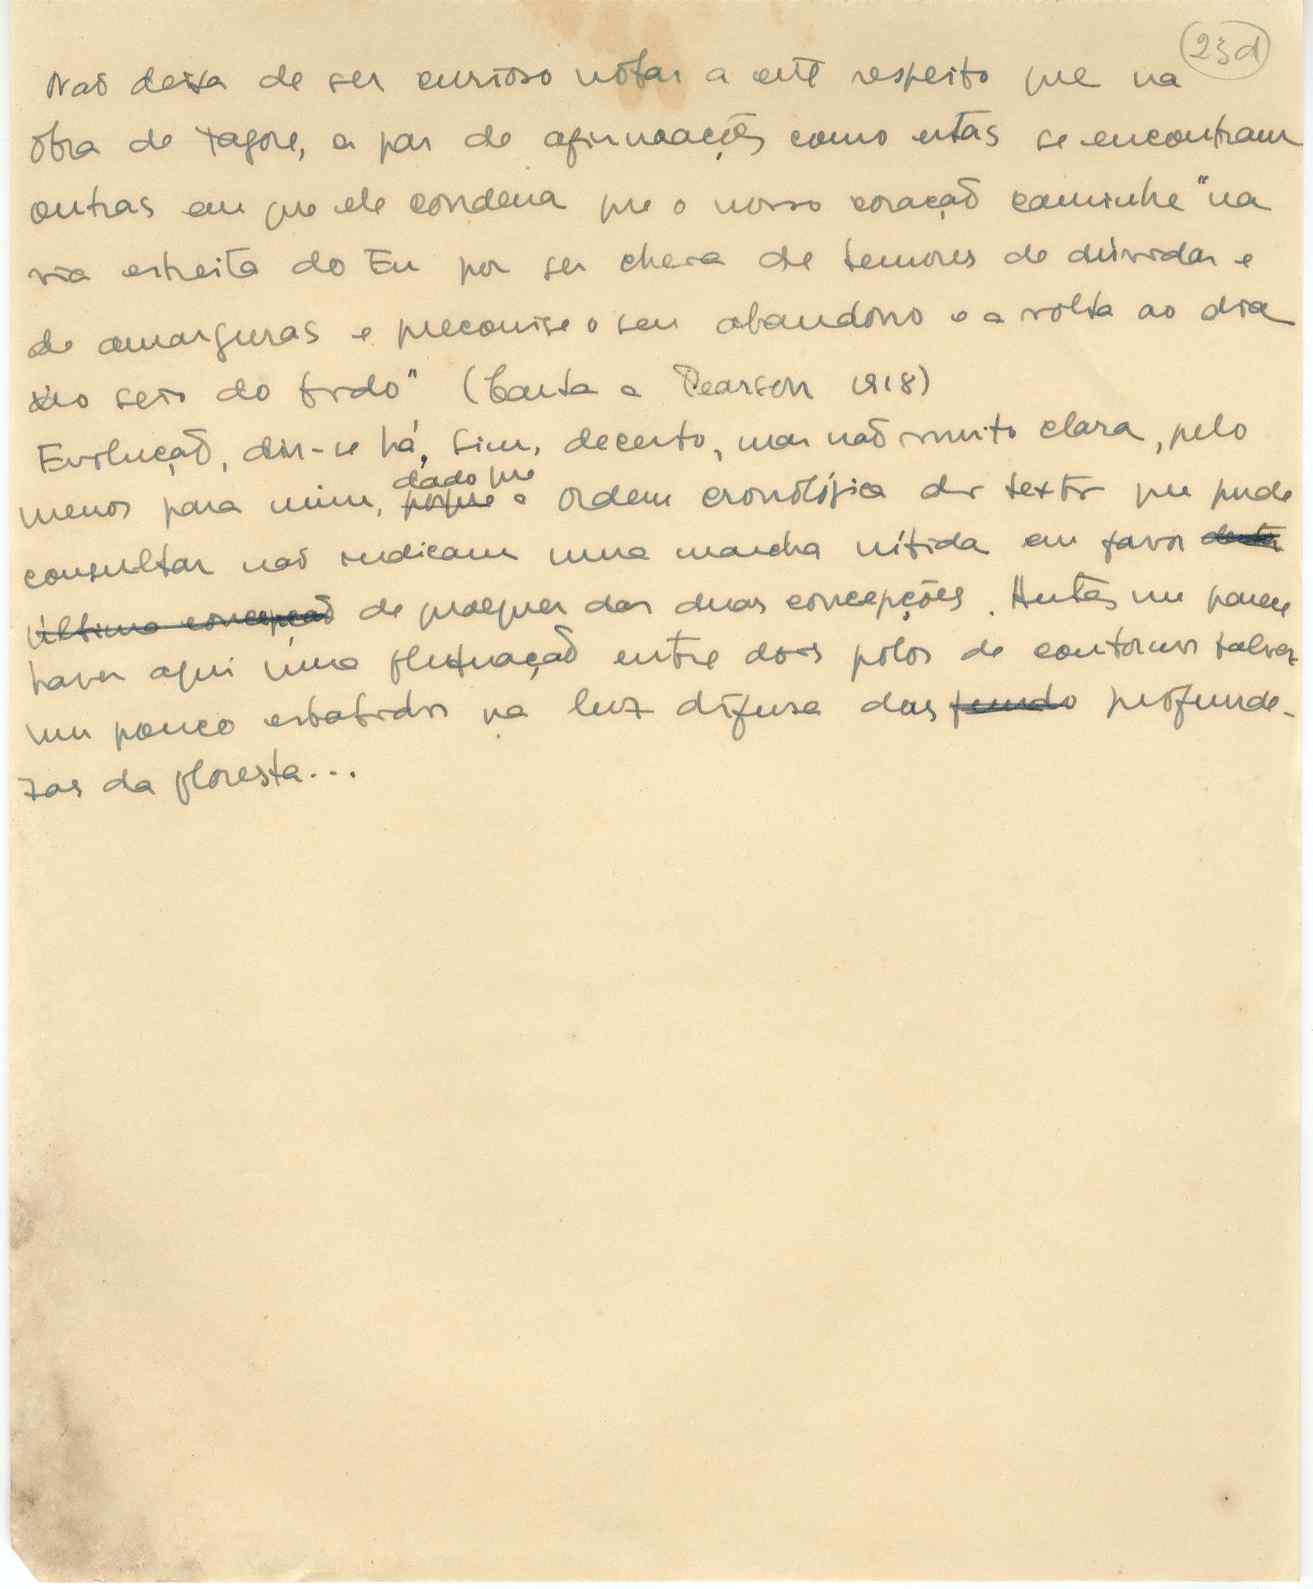 23d
Não deixa de ser curioso notar a este respeito que na
obra de Tagore, a par de afirmações como estas se encontram
outras em que ele condena que o nosso coração caminhe "na
via estreita do Eu por ser cheia de temores de dúvidas e
de amarguras e preconise o seu abandono e a volta ao dia
no seio do todo" (Carta a Pearson 1918)
Evolução, dir-se há, Sim, decerto, mas não muito clara, pelo
menos para mim, porque dado que a ordem cronológica dos textos que pude
consultar não indicam uma marcha nítida em favor desta
última concepção de qualquer das duas concepções. Antes me parece
haver aqui uma flutuação entre dois polos de contornos talvez
um pouco esbatidos na luz difusa das fundo profunde-
zas da floresta...